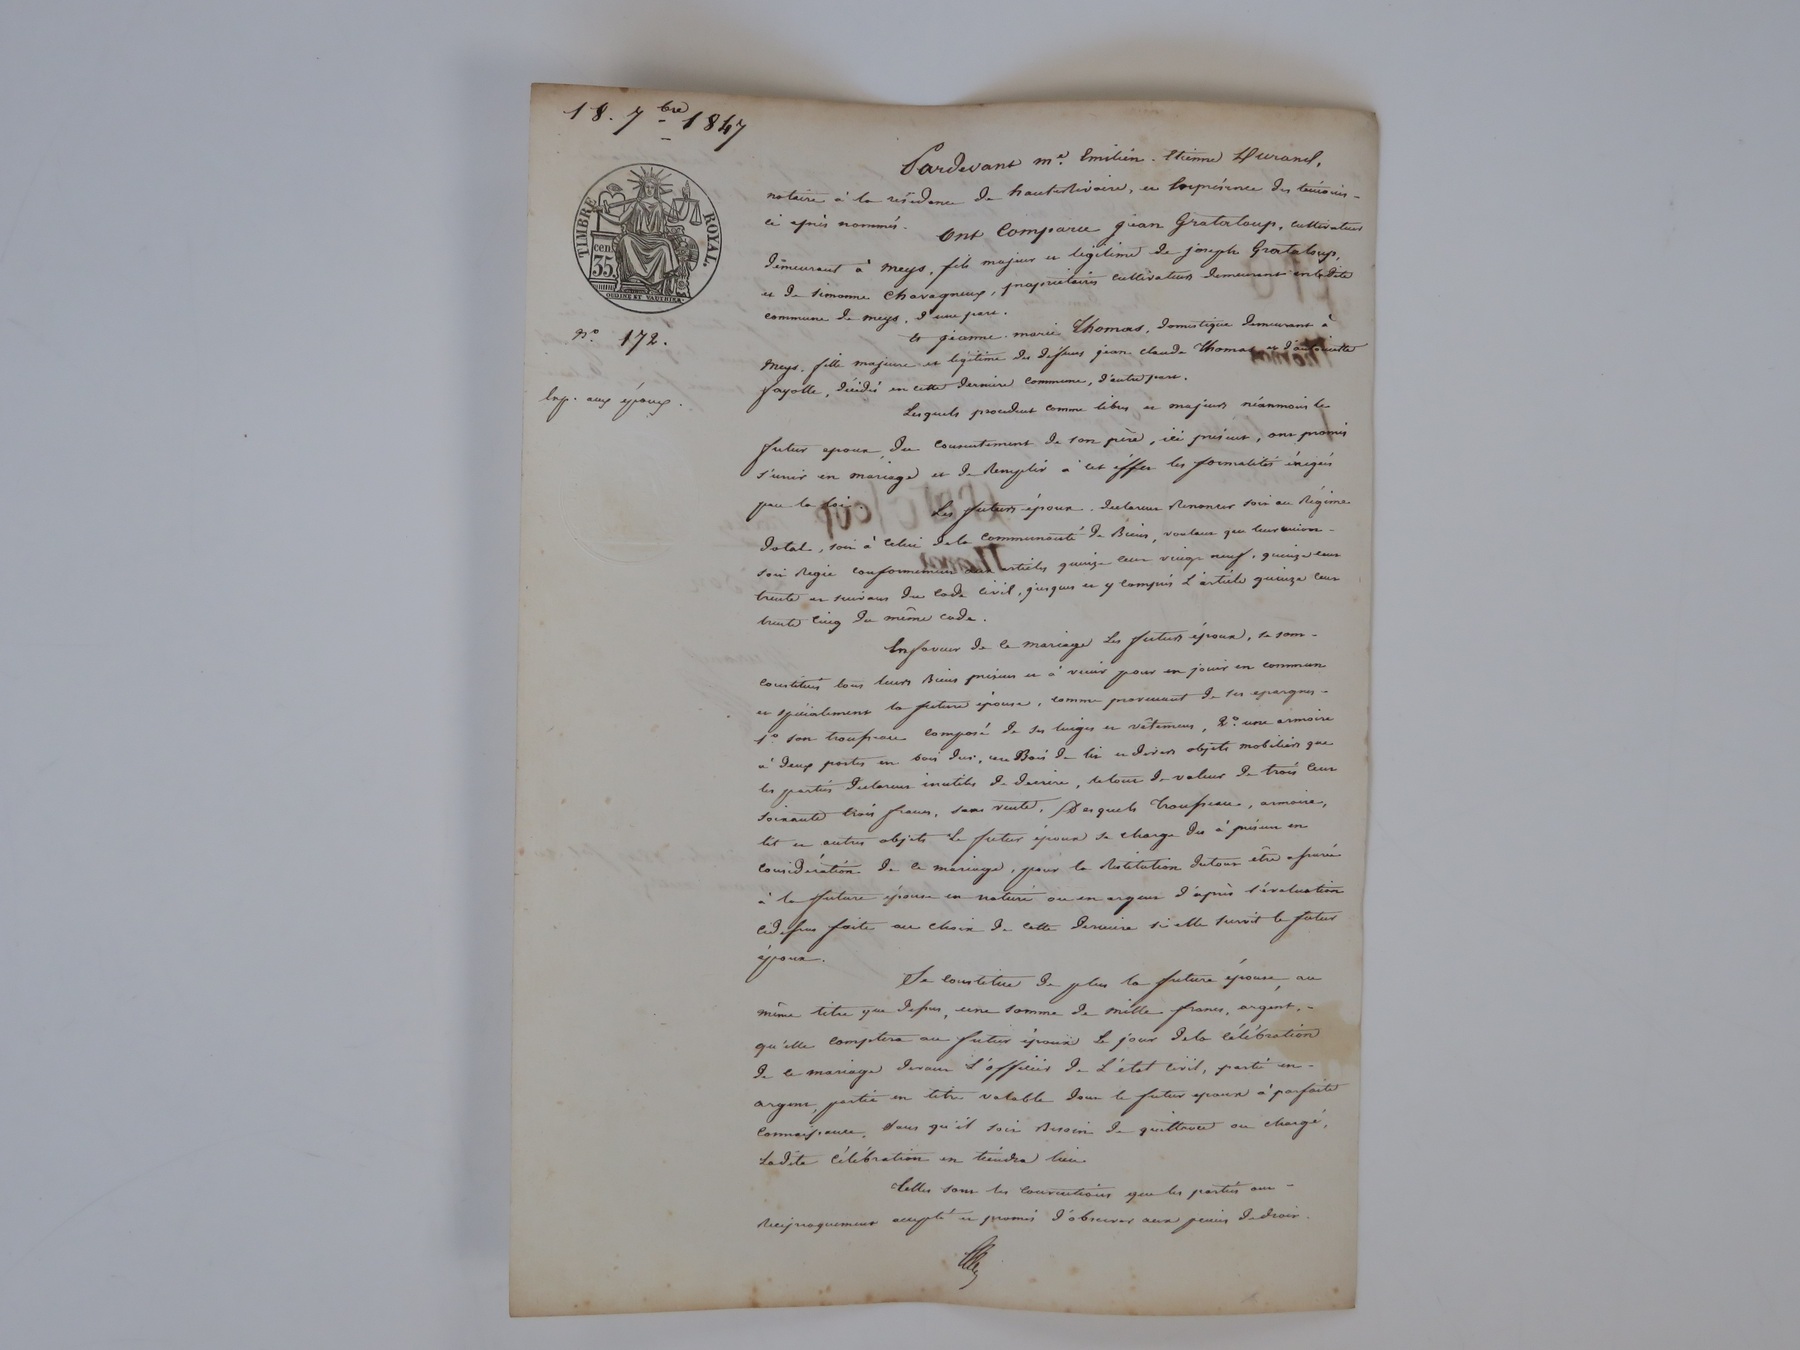 18. 7bre 1847
TIMBRE ROYAL.
cen. 35.
No 172.
Exp. aux époux.
Pardevant me. Emilien. Etienne Durand,
notaire à la résidence de hauterivoire, en la présence des témoins
ci après nommés.
Ont Comparu jean Grataloup, cultivateur
demeurant à meys, fils majeur et légitime de joseph Grataloup,
et de simonne Chavagneux, propriétaires cultivateurs demeurant en ladite
commune de meys, d'une part.
Et jeanne-marie Thomas, domestique demeurant à
Meys, fille majeure et légitime des défuns jean-claude Thomas et d'antoinette
fayolle, décédés en cette dernière commune, d'autre part.
Lesquels procédent comme libres et majeurs néanmois le
futur epoux du consentement de son père, ici présent, ont promis
s'unir en mariage et de Remplir à cet éffet les formalités éxigées
par la loi.
Les futurs époux déclarent Renoncer soit au Régime
dotal, soit à celui dela Communauté de Biens, voulant que leur union
soit Régie conformement aux articles quinze cent vingt neuf, quinze cent
trente et suivans du Code Civil, jusques et y compris L'article quinze cent
trente cinq du même code.
En faveur de ce mariage Les futurs époux, se sont
constitués tous leurs Biens présens et à venir pour en jouir en commun
et spécialement la future épouse, comme provenant de ses epargnes
1o son trousseau composé de ses linges et vêtemens, 2o une armoire
à deux portes en bois dur, un Bois de lit et divers objets mobiliers que
les parties déclarent inutiles de décrire, le tout de valeur de trois cent
soixante trois francs, sans vente, Desquels trousseau, armoire,
lit et autres objets Le futur époux se charge dès à présent en
considération de ce mariage, pour la Réstitution dutout être assurée
à la future épouse en nature ou en argent d'après l'évaluation
cidessus faite au choix de cette dernière si elle survit le futur
époux.
Se constitue de plus la future épouse, au
même titre que dessus, une somme de mille francs, argent,
qu'elle comptera au futur époux Le jour dela célébration
de ce mariage devant L'officier de L'état Civil, partie en
argent, partie en titre valable dont le futur epoux à parfaite
connaissance, sans qu'il soit Besoin de quittance ou chargé,
Ladite célébration en tiendra lieu.
Telles sont les conventions que les parties ont
Réciproquement accepté et promis d'observer aux peines dedroit.